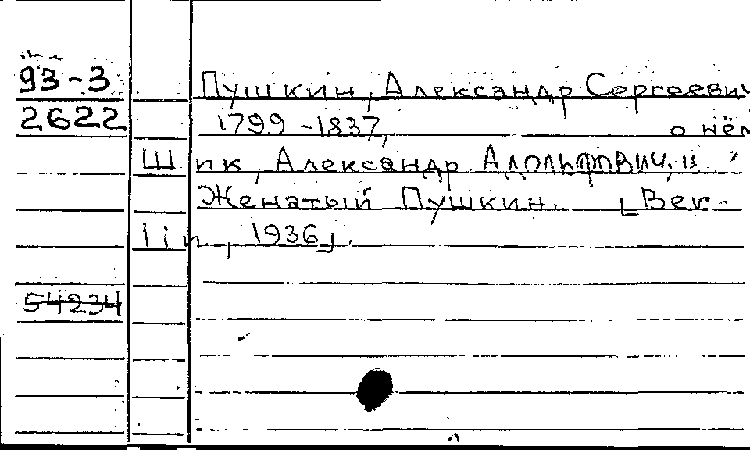 93-3 Пушкин, Александр Сергеевич
2622 1799-1837, о нём
Шик, Александр Адольфович.
Женатый Пушкин. [Ber-
lin, 1936].
54234